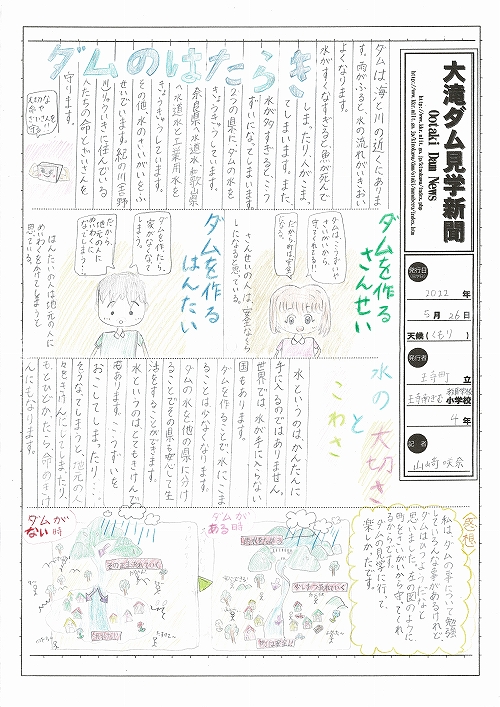 大滝ダム見学新聞
Ootaki Dam News
発行日
2022年
5月26日
天候(くもり)
発行者
王寺町立
小学校
4年
記者
ダムのはたらき
ダムは海と川の近くにあります。雨がふると、水の流れがいきおいよくなります。
水がすくなすぎると魚が死んで
しまったり、人がこまってしまいます。また、
水が多すぎると、こうずいになってしまいます。
2つの県にダムの水を
きょうきゅうしています。
奈良県で水道水、和歌県
へ水道水と工業用水を
きょうきゅうしています。
その他、水のさいがいをふ
せいでいます。紀の川(吉野
川)りゅういきに住んでいる
人たちの命とざいさんを
守ります。
ダムを作る
さんせい
さんせいの人は、安全なくらしになると思っている。
ダムを作る
はんたい
ダムを作たら、
家がなくなて
しまう。
だから、
地元の人に
めいわくに
なてしまう
はんたいの人は地元の人に
めいわくをかけてしまうと
思っている。
水の大切さ
と
こわさ
水というのは、かんたんに
手に入るのではありません。
世界では水が手に入らない
国もあります。
ダムを作ることで、水にこま
ることは少なくなります。
ダムの水を他の県に分け
ることでその県も安心して生
活をすることができます。
水というのはとてもきけんで
もあります。こうずいを
おこしてしまったり…。
そうなてしまうと、地元の人
々をきけんにしてしまたり、
もとひどかたら、命のきけ
んにもなります。
感想
私は、ダムの事について勉強
して、いろんな事があるけれど
ダムはひつようだなと
思いました。左の図のように
町をさいがいから守ってくれ
るからです。
ダムの見学に行って、
楽しかったです。
ダムが
ある時
少しずつ流れていく
ダムが
ない時
そのまま流れていく